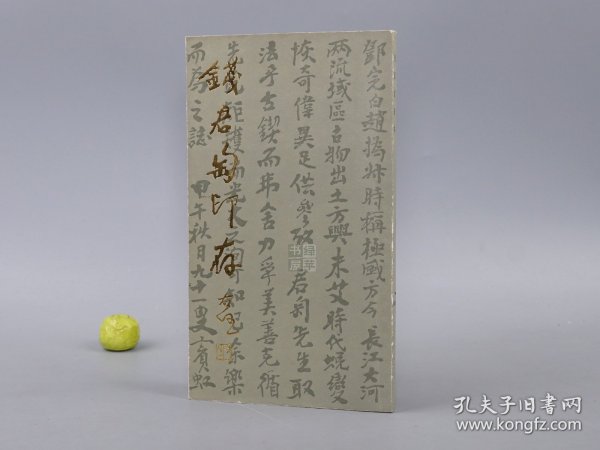 鄧完白趙撝叔時稱極盛方今長江大河
两流域區古物出土方興未艾時代蜕變
恢奇偉異足供參考君匋先生取
法乎古鍥而不舍力爭美善克循
先
而為之誌 甲午秋日九十一叟賓虹
錢君匋印存
孔夫子旧书网
www.kongfz.com